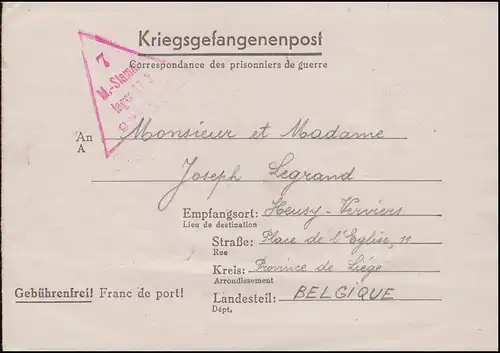 Kriegsgefangenenpost
Correspondance des prisonniers de guerre
7
M.-Stamm
lager
An Monsieur et Madame
A
Joseph Legrand
Empfangsort: Heusy-Verviers
Lieu de destination
Straße: Place de l'Eglise, 11
Rue
Kreis: Province de Liége
Arrondissement
Gebührenfrei! Franc de port!
Landesteil: BELGIQUE
Dépt.